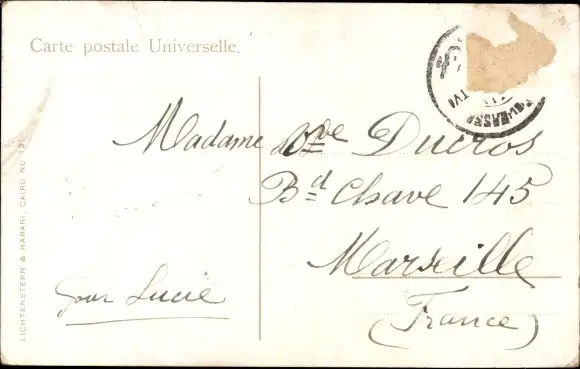 Carte postale Universelle.
Madame Vve Ducros
Bd Chave 145
Marseille
(France)
pour Lucie
LICHTENSTERN & HARARI, CAIRO NO 131